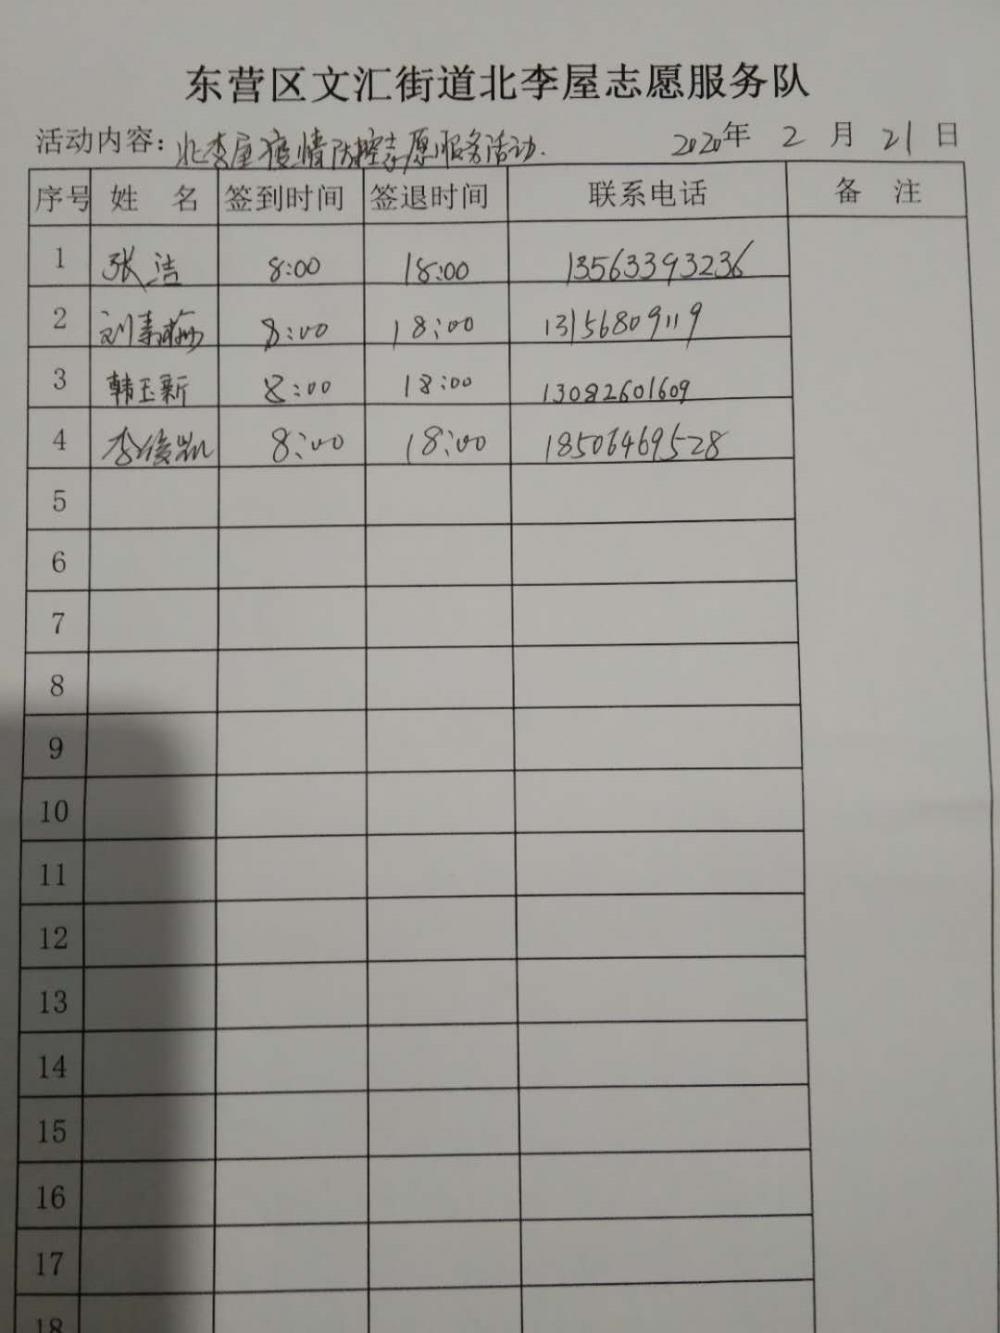 东营区文汇街道北李屋志愿服务队
活动内容：北李屋疫情防控志愿服务活动. 2020年 2 月 21 日
序号 姓 名 签到时间 签退时间 联系电话 备 注
1 张洁 8:00 18:00 13563393236
2 刘 8:00 18:00 13156809119
3 韩玉新 8:00 18:00 13082601609
4 李俊凯 8:00 18:00 18506469528
5
6
7
8
9
10
11
12
13
14
15
16
17
18